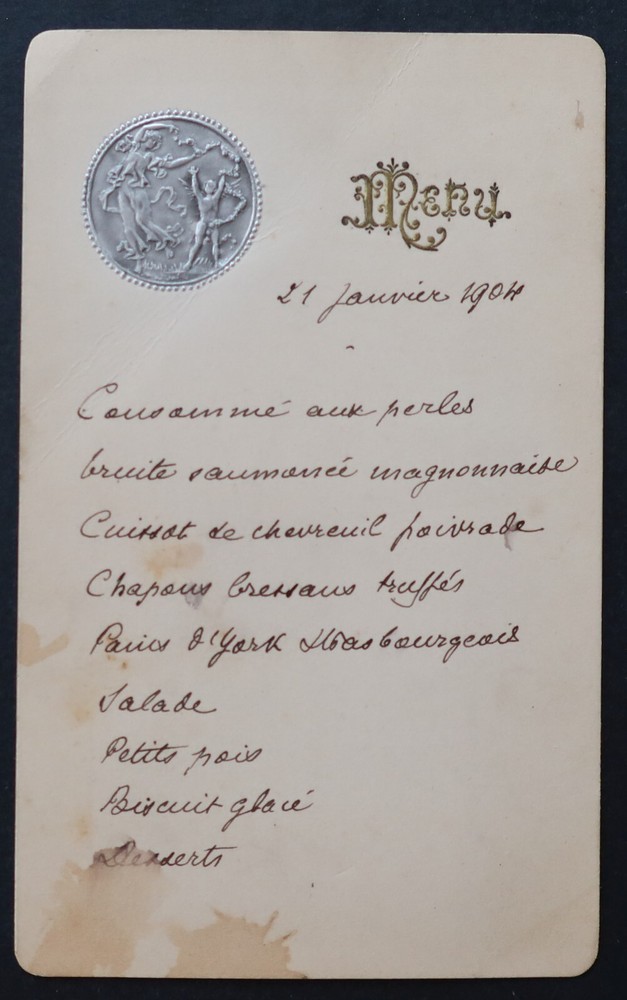 Menu
21 Janvier 1904
Consommé aux perles
truite saumonée magnonnaise
Cuissot de chevreuil poivrade
Chapons bressans truffés
Pains d'York Strasbourgeois
Salade
Petits pois
Biscuit glacé
Desserts